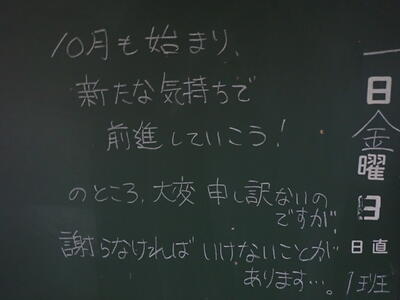 10月も始まり、
新たな気持ちで
前進していこう!
のところ、大変申し訳ないの
ですが、
謝らなければいけないことが
あります…。
一
日
金
曜
日
日直
1班